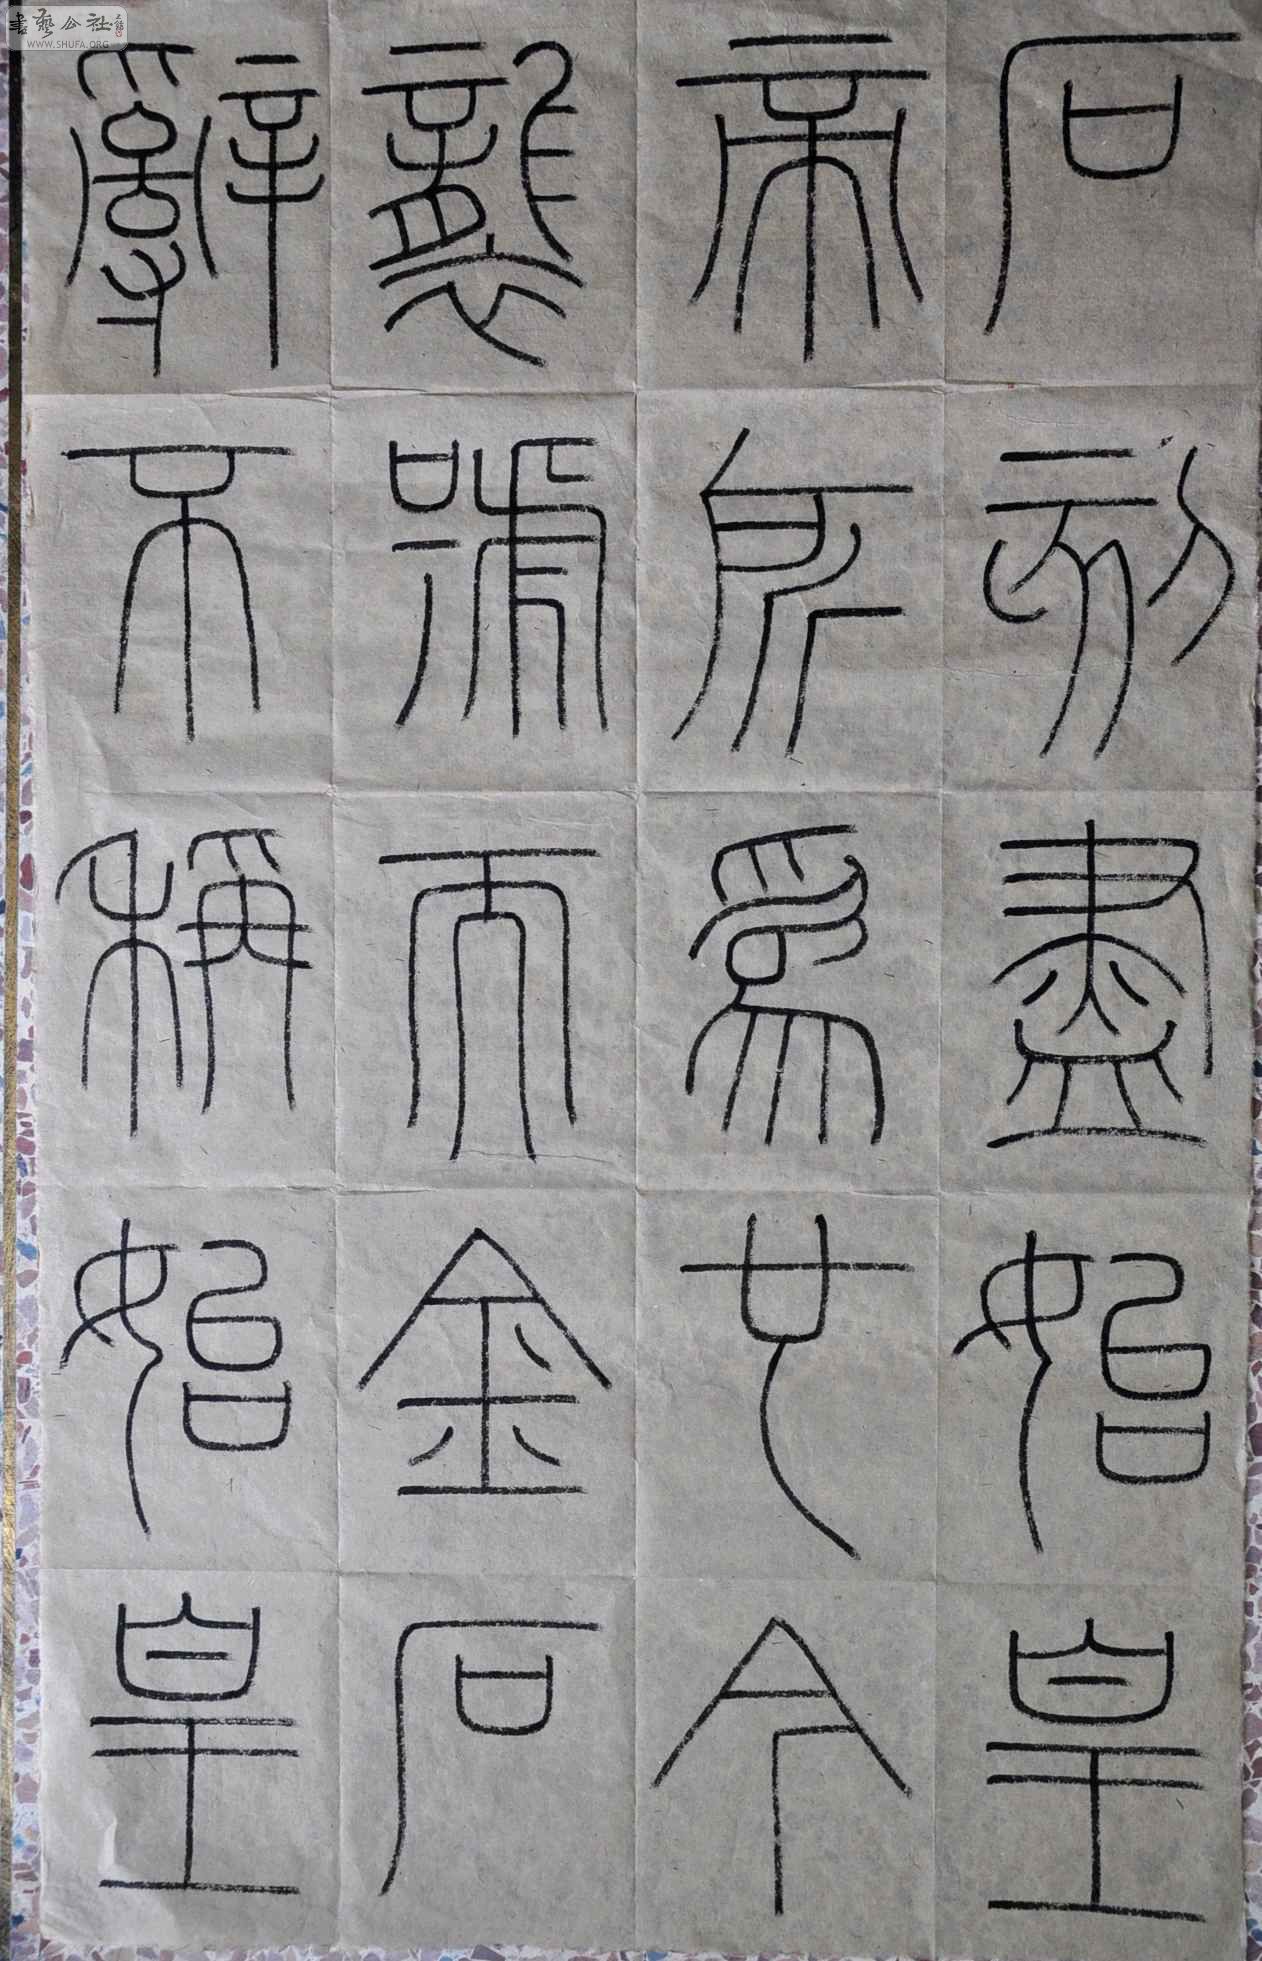 石刻盡始皇
帝所為也今
襲號而金石
辭不稱始皇
書藝公社
WWW.SHUFA.ORG